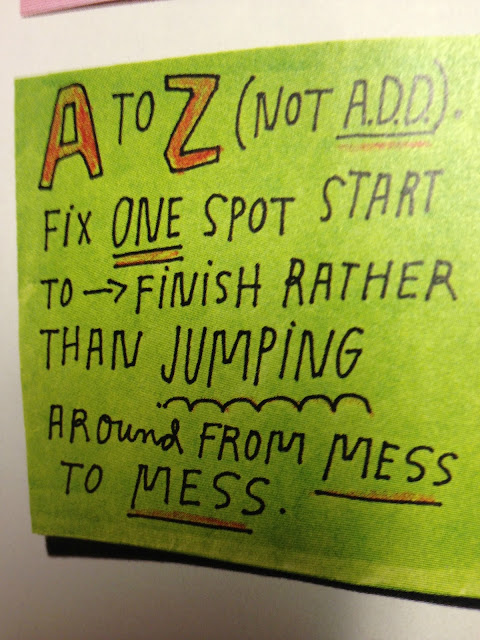 A TO Z (NOT A.D.D.).
FiX ONE SPOT START
TO → FiNiSH RATHER
THAN JUMPiNG
ARound FROM MESS
TO MESS.